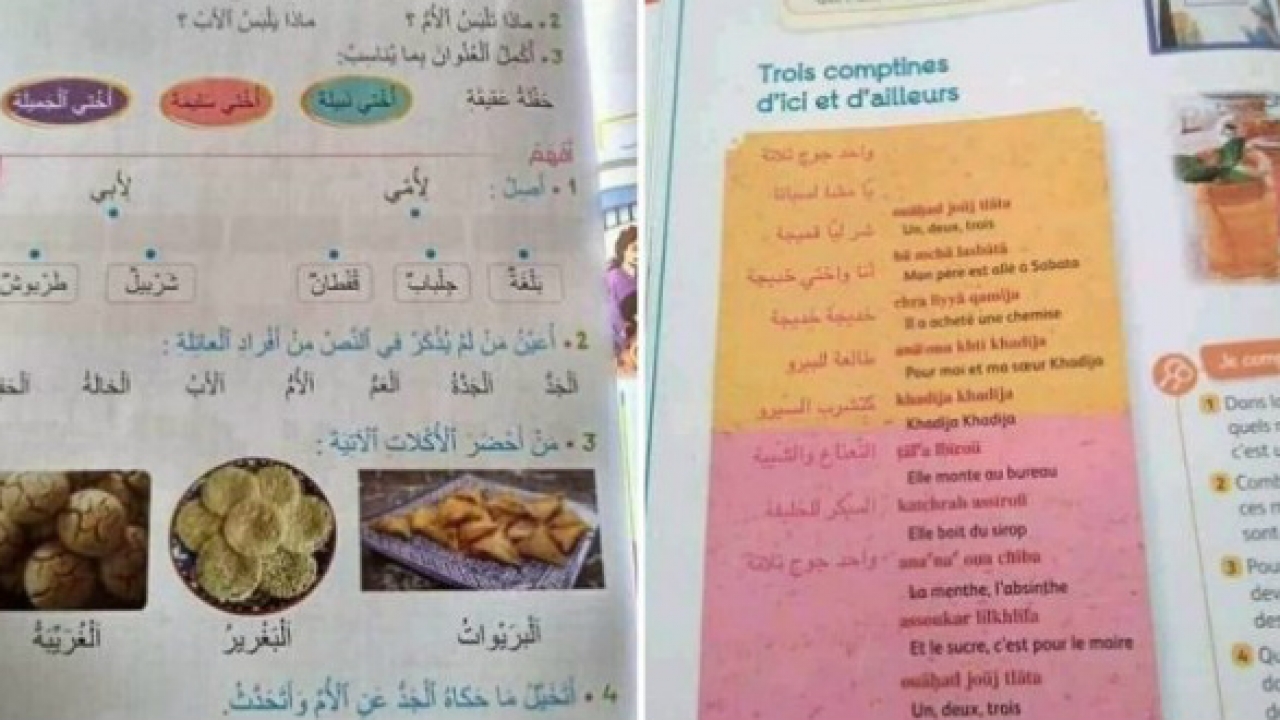 2. ماذا تَلْبَسُ ٱلْأُمُّ ؟ ماذا يَلْبَسُ ٱلْأَبُ ؟
3. أُكْمِلُ ٱلْعُنْوانَ بِما يُناسِبُ:
حَفْلَةُ عَقيقَةِ أُخْتي نَبيلَة أُخْتي سَليمَة أُخْتي ٱلْجَميلَة
أَفْهَمُ
1. أَصِلُ :
لِأُمّي لِأَبي
بَلْغَةٌ جِلْبابٌ قُفْطانٌ شَرْبيلٌ طَرْبوشٌ
2. أُعَيِّنُ مَنْ لَمْ يُذْكَرْ في ٱلنَّصِّ مِنْ أَفْرادِ ٱلْعائِلَةِ :
ٱلْجَدُّ ٱلْجَدَّةُ ٱلْعَمُّ ٱلْأُمُّ ٱلْأَبُ ٱلْخالَةُ
3. مَنْ أَحْضَرَ ٱلْأَكَلاتِ ٱلْآتِيَةَ :
ٱلْبَرَيْواتُ ٱلْبَغْريرُ ٱلْغُرَيِّبَةُ
4. أَتَخَيَّلُ ما حَكاهُ ٱلْجَدُّ عَنِ ٱلْأُمِّ وَأَتَحَدَّثُ.
Trois comptines
d'ici et d'ailleurs
واحد جوج تلاتة
با مشا لسباتا
شر ليا قميجة
أنا واختي خديجة
خديجة خديجة
طالعة للبيرو
كتشرب السيرو
النعناع والشيبة
السكر للخليفة
واحد جوج تلاتة
ouāḥad joūj tlāta
Un, deux, trois
bā mchā lasbātā
Mon père est allé à Sabata
chra liyyā qamija
Il a acheté une chemise
anā ou khti khadija
Pour moi et ma sœur Khadija
khadija khadija
Khadija Khadija
Elle monte au bureau
katchrab assiroū
Elle boit du sirop
La menthe, l'absinthe
assoukar lilkhlifa
Et le sucre, c'est pour le maire
ouāḥad joūj tlāta
Un, deux, trois
Je com
1 Dans l
quels
c'est u
2 Comb
ces
sont
3 Pou
dev
des
4 Qu